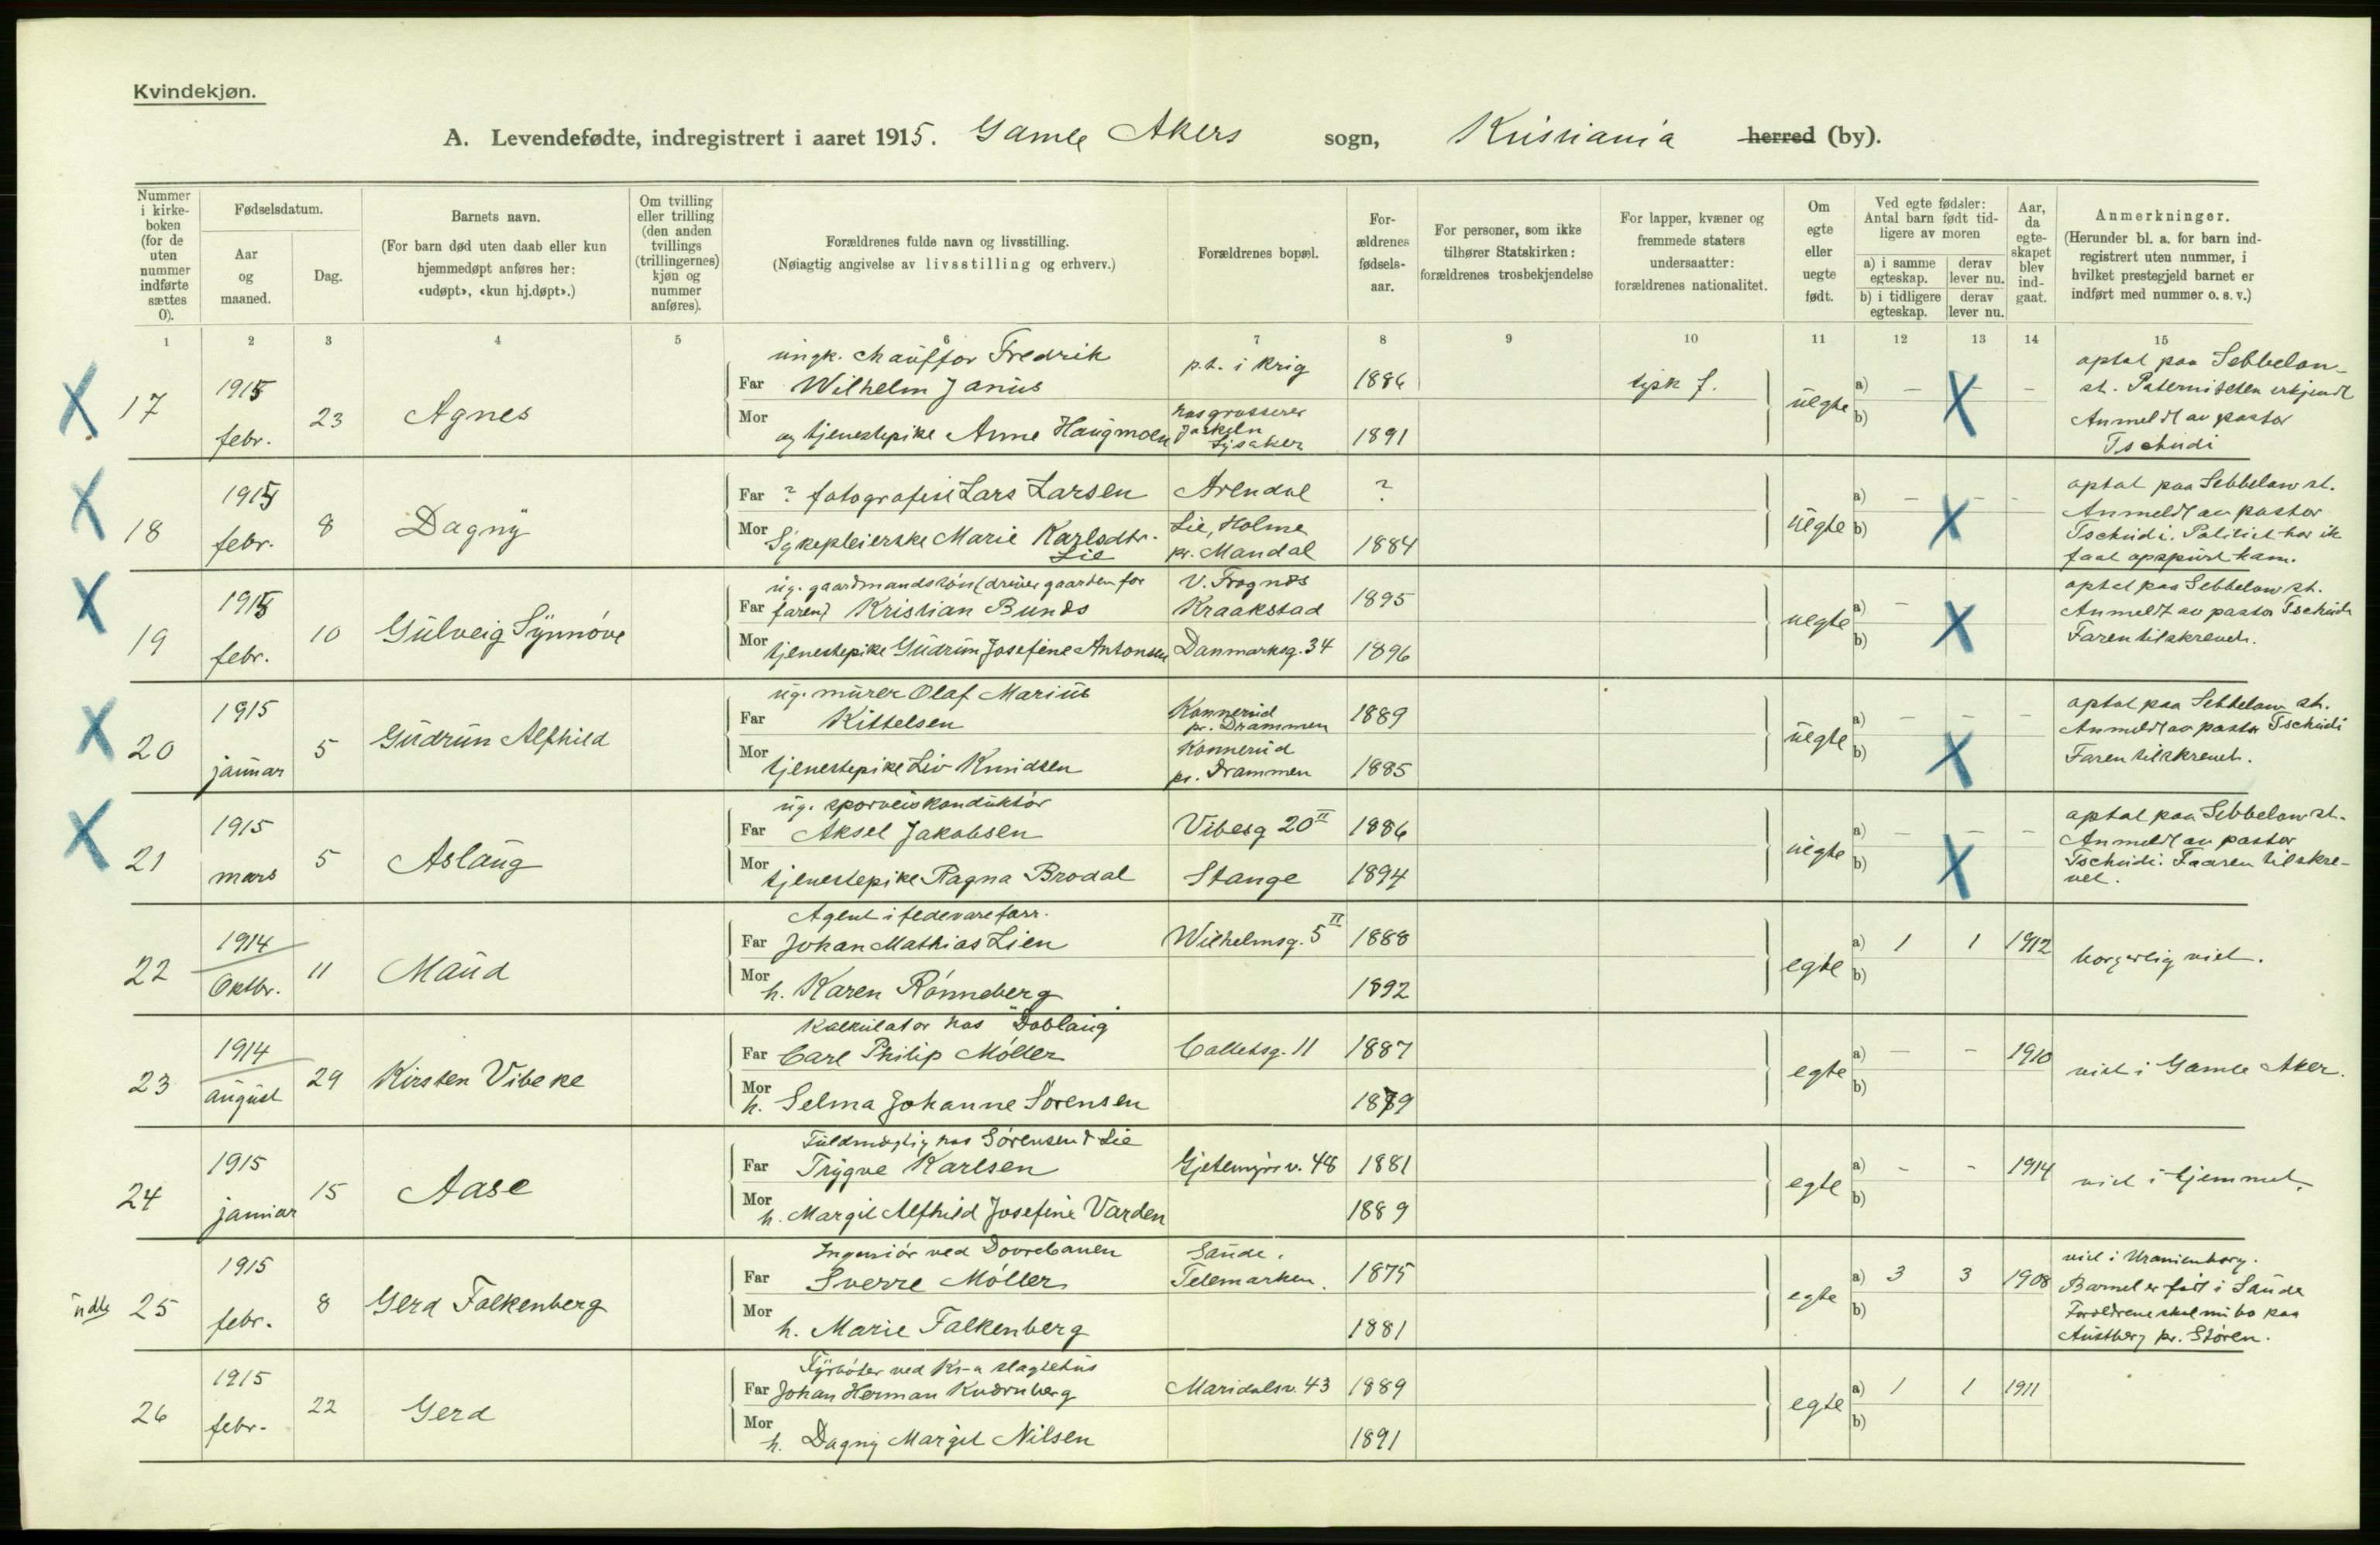 Kvindekjøn.
A. Levendefødte, indregistrert i aaret 1915. Gamle Akers sogn, Kristiania herred (by).
Nummer i kirke- boken (for de uten nummer indførte sættes 0).
Fødselsdatum.
Aar og maaned.
Dag.
Barnets navn.
(For barn død uten daab eller kun hjemmedøpt anføres her: «udøpt», «kun hj.døpt».)
Om tvilling eller trilling (den anden tvillings (trillingernes) kjøn og nummer anføres).
Forældrenes fulde navn og livsstilling.
(Nøiagtig angivelse av livsstilling og erhverv.)
Forældrenes bopæl.
For- ældrenes fødsels- aar.
For personer, som ikke tilhører Statskirken: forældrenes trosbekjendelse
For lapper, kvæner og fremmede staters undersaatter: forældrenes nationalitet.
Om egte eller uegte født.
Ved egte fødsler: Antal barn født tid- ligere av moren
a) i samme egteskap.
derav lever nu.
b) i tidligere egteskap.
derav lever nu.
Aar, da egte- skapet blev ind- gaat.
Anmerkninger.
(Herunder bl. a. for barn ind- registrert uten nummer, i hvilket prestegjeld barnet er indført med nummer o. s. v.)
1 2 3 4 5 6 7 8 9 10 11 12 13 14 15
X 17 1915 febr. 23 Agnes
ungk. chauffør Fredrik
Far Wilhelm Janus p.t. i krig 1886 tysk f.
Mor og tjenestepike Anne Haugmoen hos grosserer Lysaker 1891
uegte a) – – – b) X
optat paa Sebbelow-
st. Paterniteten erkjendt
Anmeldt av pastor
Tschudi
X 18 1915 febr. 8 Dagny
Far ? fotografist Lars Larsen Arendal ?
Mor Sykepleierske Marie Karlsdtr. Lie Lie, Holme pr. Mandal 1884
uegte a) – – – b) X
optat paa Sebbelow st.
Anmeldt av pastor
Tschudi. Politiet har ik
faat opspurt ham.
X 19 1915 febr. 10 Gulveig Synnøve
ug. gaardmandssøn (driver gaarden for
Far faren) Kristian Bunds V. Frognes Kraakstad 1895
Mor tjenestepike Gudrun Josefine Antonsen Danmarksg. 34 1896
uegte a) – b) X
optat paa Sebbelow st.
Anmeldt av pastor Tschudi
Faren tilskrevet.
X 20 1915 januar 5 Gudrun Alfhild
ug. murer Olaf Marius
Far Kittelsen Konnerud pr. Drammen 1889
Mor tjenestepike Liv Knudsen Konnerud pr. Drammen 1885
uegte a) – – – b) X
optat paa Sebbelow st.
Anmeldt av pastor Tschudi
Faren tilskrevet.
X 21 1915 mars 5 Aslaug
ug. sporveiskonduktør
Far Aksel Jakobsen Vibesg 20 II 1886
Mor tjenestepike Ragna Brodal Stange 1894
uegte a) – – – b) X
optat paa Sebbelow st.
Anmeldt av pastor
Tschudi. Faaren tilskre-
vet.
22 1914 Oktbr. 11 Maud
Agent i fedevareforr.
Far Johan Mathias Lien Wilhelmsg. 5 II 1888
Mor h. Karen Rønneberg 1892
egte a) 1 1 1912 b)
borgerlig viet.
23 1914 august 29 Kirsten Vibeke
Kalkulator hos "Doblaug"
Far Carl Philip Møller Colletsg. 11 1887
Mor h. Selma Johanne Sørensen 1889
egte a) – – 1910 b)
viet i Gamle Aker.
24 1915 januar 15 Aase
Fuldmægtig hos Sørensen & Lie
Far Trygve Karlsen Gjetemyrsv. 48 1881
Mor h. Margit Alfhild Josefine Varden 1889
egte a) – – 1914 b)
viet i hjemmet.
udb 25 1915 febr. 8 Gerd Falkenberg
Ingeniør ved Dovrebanen
Far Sverre Møller Saude. Telemarken. 1875
Mor h. Marie Falkenberg 1881
egte a) 3 3 1908 b)
viet i Uranienborg.
Barnet er født i Saude
Forældrene skal nu bo paa
Austberg pr. Støren.
26 1915 febr. 22 Gerd
Fyrbøter ved Kr-a slagtehus
Far Johan Herman Kvernberg Maridalsv. 43 1889
Mor h. Dagny Margit Nilsen 1891
egte a) 1 1 1911 b)